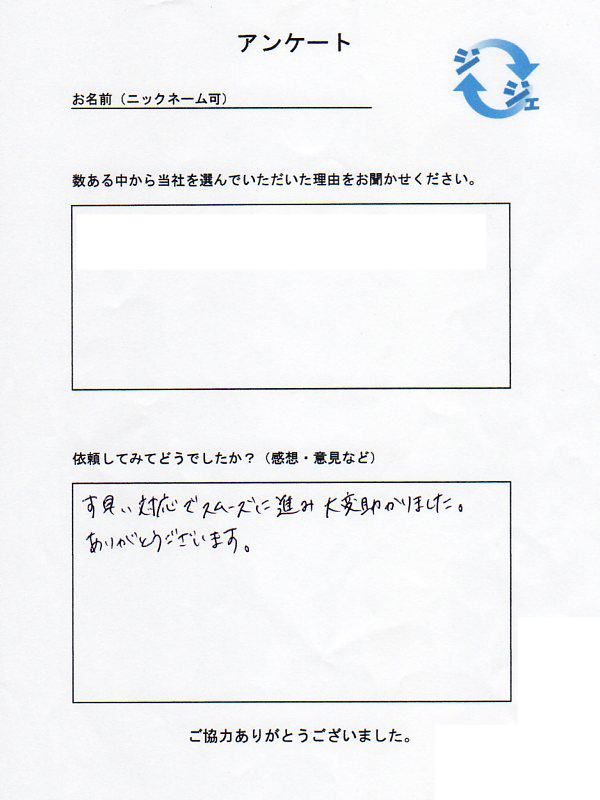 アンケート
ジジェ
お名前（ニックネーム可）
数ある中から当社を選んでいただいた理由をお聞かせください。
依頼してみてどうでしたか？（感想・意見など）
す早い対応でスムーズに進み大変助かりました。
ありがとうございます。
ご協力ありがとうございました。